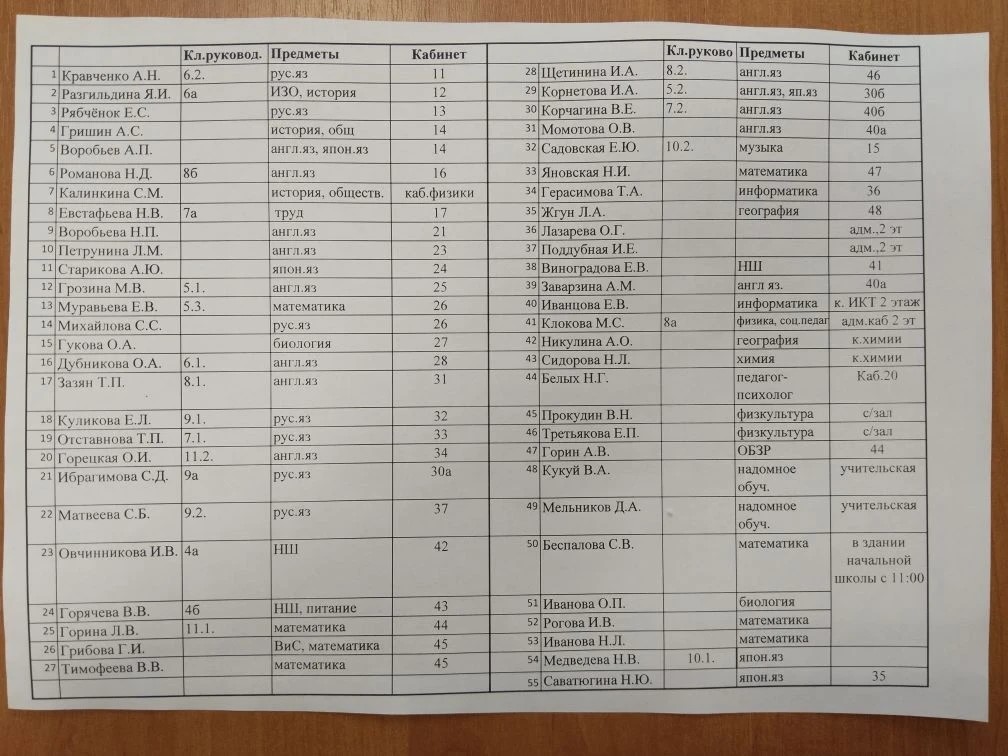 Кл.руковод. Предметы Кабинет
1 Кравченко А.Н. 6.2. рус.яз 11
2 Разгильдина Я.И. 6а ИЗО, история 12
3 Рябчёнок Е.С. рус.яз 13
4 Гришин А.С. история, общ 14
5 Воробьев А.П. англ.яз, япон.яз 14
6 Романова Н.Д. 8б англ.яз 16
7 Калинкина С.М. история, обществ. каб.физики
8 Евстафьева Н.В. 7а труд 17
9 Воробьева Н.П. англ.яз 21
10 Петрунина Л.М. англ.яз 23
11 Старикова А.Ю. япон.яз 24
12 Грозина М.В. 5.1. англ.яз 25
13 Муравьева Е.В. 5.3. математика 26
14 Михайлова С.С. рус.яз 26
15 Гукова О.А. биология 27
16 Дубникова О.А. 6.1. англ.яз 28
17 Зазян Т.П. 8.1. англ.яз 31
18 Куликова Е.Л. 9.1. рус.яз 32
19 Отставнова Т.П. 7.1. рус.яз 33
20 Горецкая О.И. 11.2. англ.яз 34
21 Ибрагимова С.Д. 9а рус.яз 30а
22 Матвеева С.Б. 9.2. рус.яз 37
23 Овчинникова И.В. 4а НШ 42
24 Горячева В.В. 4б НШ, питание 43
25 Горина Л.В. 11.1. математика 44
26 Грибова Г.И. ВиС, математика 45
27 Тимофеева В.В. математика 45
Кл.руково Предметы Кабинет
28 Щетинина И.А. 8.2. англ.яз 46
29 Корнетова И.А. 5.2. англ.яз, яп.яз 30б
30 Корчагина В.Е. 7.2. англ.яз 40б
31 Момотова О.В. англ.яз 40а
32 Садовская Е.Ю. 10.2. музыка 15
33 Яновская Н.И. математика 47
34 Герасимова Т.А. информатика 36
35 Жгун Л.А. география 48
36 Лазарева О.Г. адм.,2 эт
37 Поддубная И.Е. адм.,2 эт
38 Виноградова Е.В. НШ 41
39 Заварзина А.М. англ яз. 40а
40 Иванцова Е.В. информатика к. ИКТ 2 этаж
41 Клокова М.С. 8а физика, соц.педаг адм.каб 2 эт
42 Никулина А.О. география к.химии
43 Сидорова Н.Л. химия к.химии
44 Белых Н.Г. педагог- Каб.20
психолог
45 Прокудин В.Н. физкультура с/зал
46 Третьякова Е.П. физкультура с/зал
47 Горин А.В. ОБЗР 44
48 Кукуй В.А. надомное учительская
обуч.
49 Мельников Д.А. надомное учительская
обуч.
50 Беспалова С.В. математика в здании
начальной
школы с 11:00
51 Иванова О.П. биология
52 Рогова И.В. математика
53 Иванова Н.Л. математика
54 Медведева Н.В. 10.1. япон.яз
55 Саватюгина Н.Ю. япон.яз 35